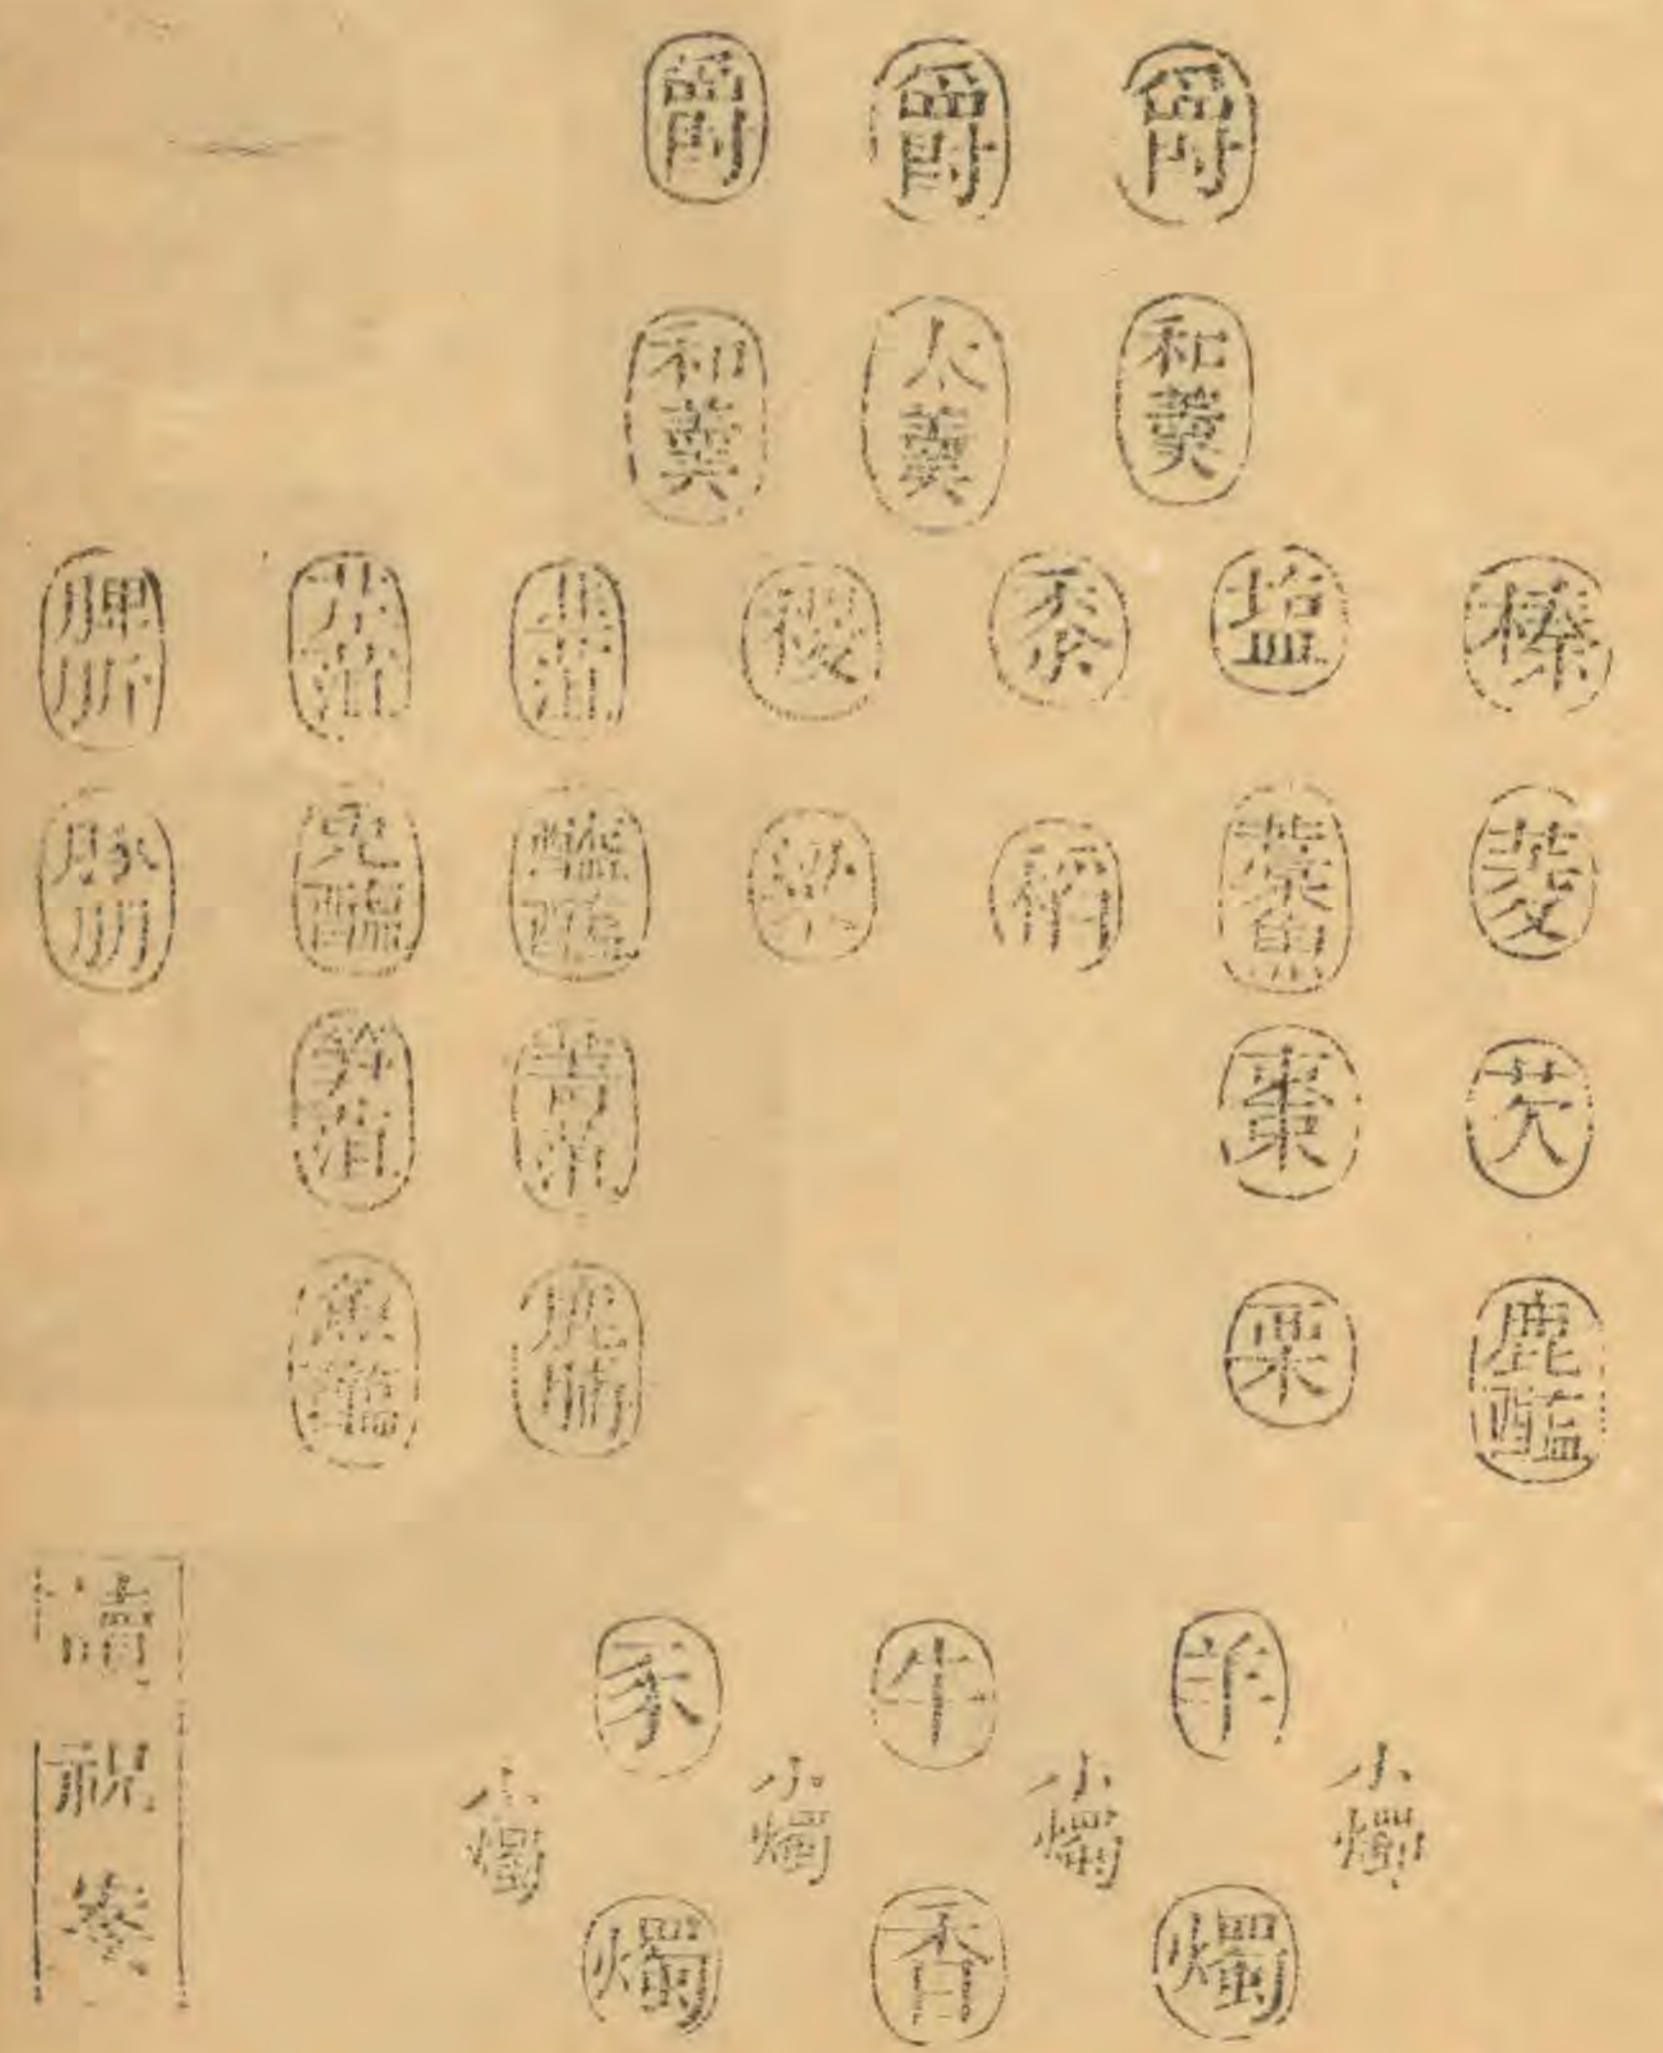 爵
爵
爵
和羹
太羹
和羹
榛
塩
黍
稷
韭菹
芹菹
脾肵
菱
藁魚
稻
粱
醓醢
兎醢
豚
芡
棗
菁菹
筍菹
鹿醢
栗
魚醢
羊
牛
豕
小燭
小燭
小燭
小燭
燭
香
燭
讀祝案